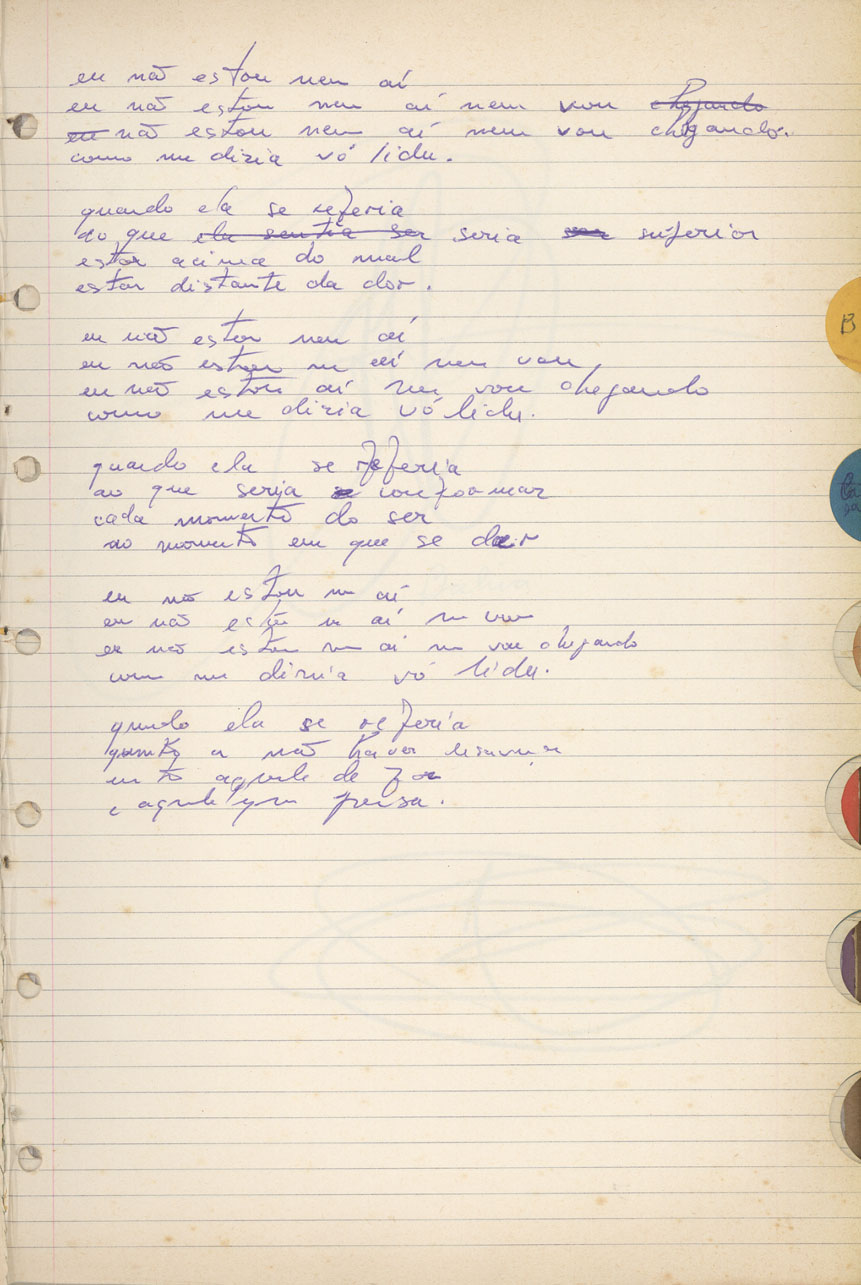 eu não estou nem aí
eu não estou nem aí nem vou chegando
eu não estou nem aí nem vou chegando.
como me diria vó lidu.
quando ela se referia
ao que ela sentia ser seria ser superior
estar acima do mal
estar distante da dor.
eu não estou nem aí
eu não estou nem aí nem vou
eu não estou aí nem vou chegando
como me diria vó lidu.
quando ela se referia
ao que seria se conformar
cada momento do ser
ao momento em que se der
eu não estou nem aí
eu não estou nem aí nem vou
eu não estou nem aí nem vou chegando
como me diria vó lidu.
quando ela se referia
quanto a não haver
aquele de
e aquele que pensa.
B